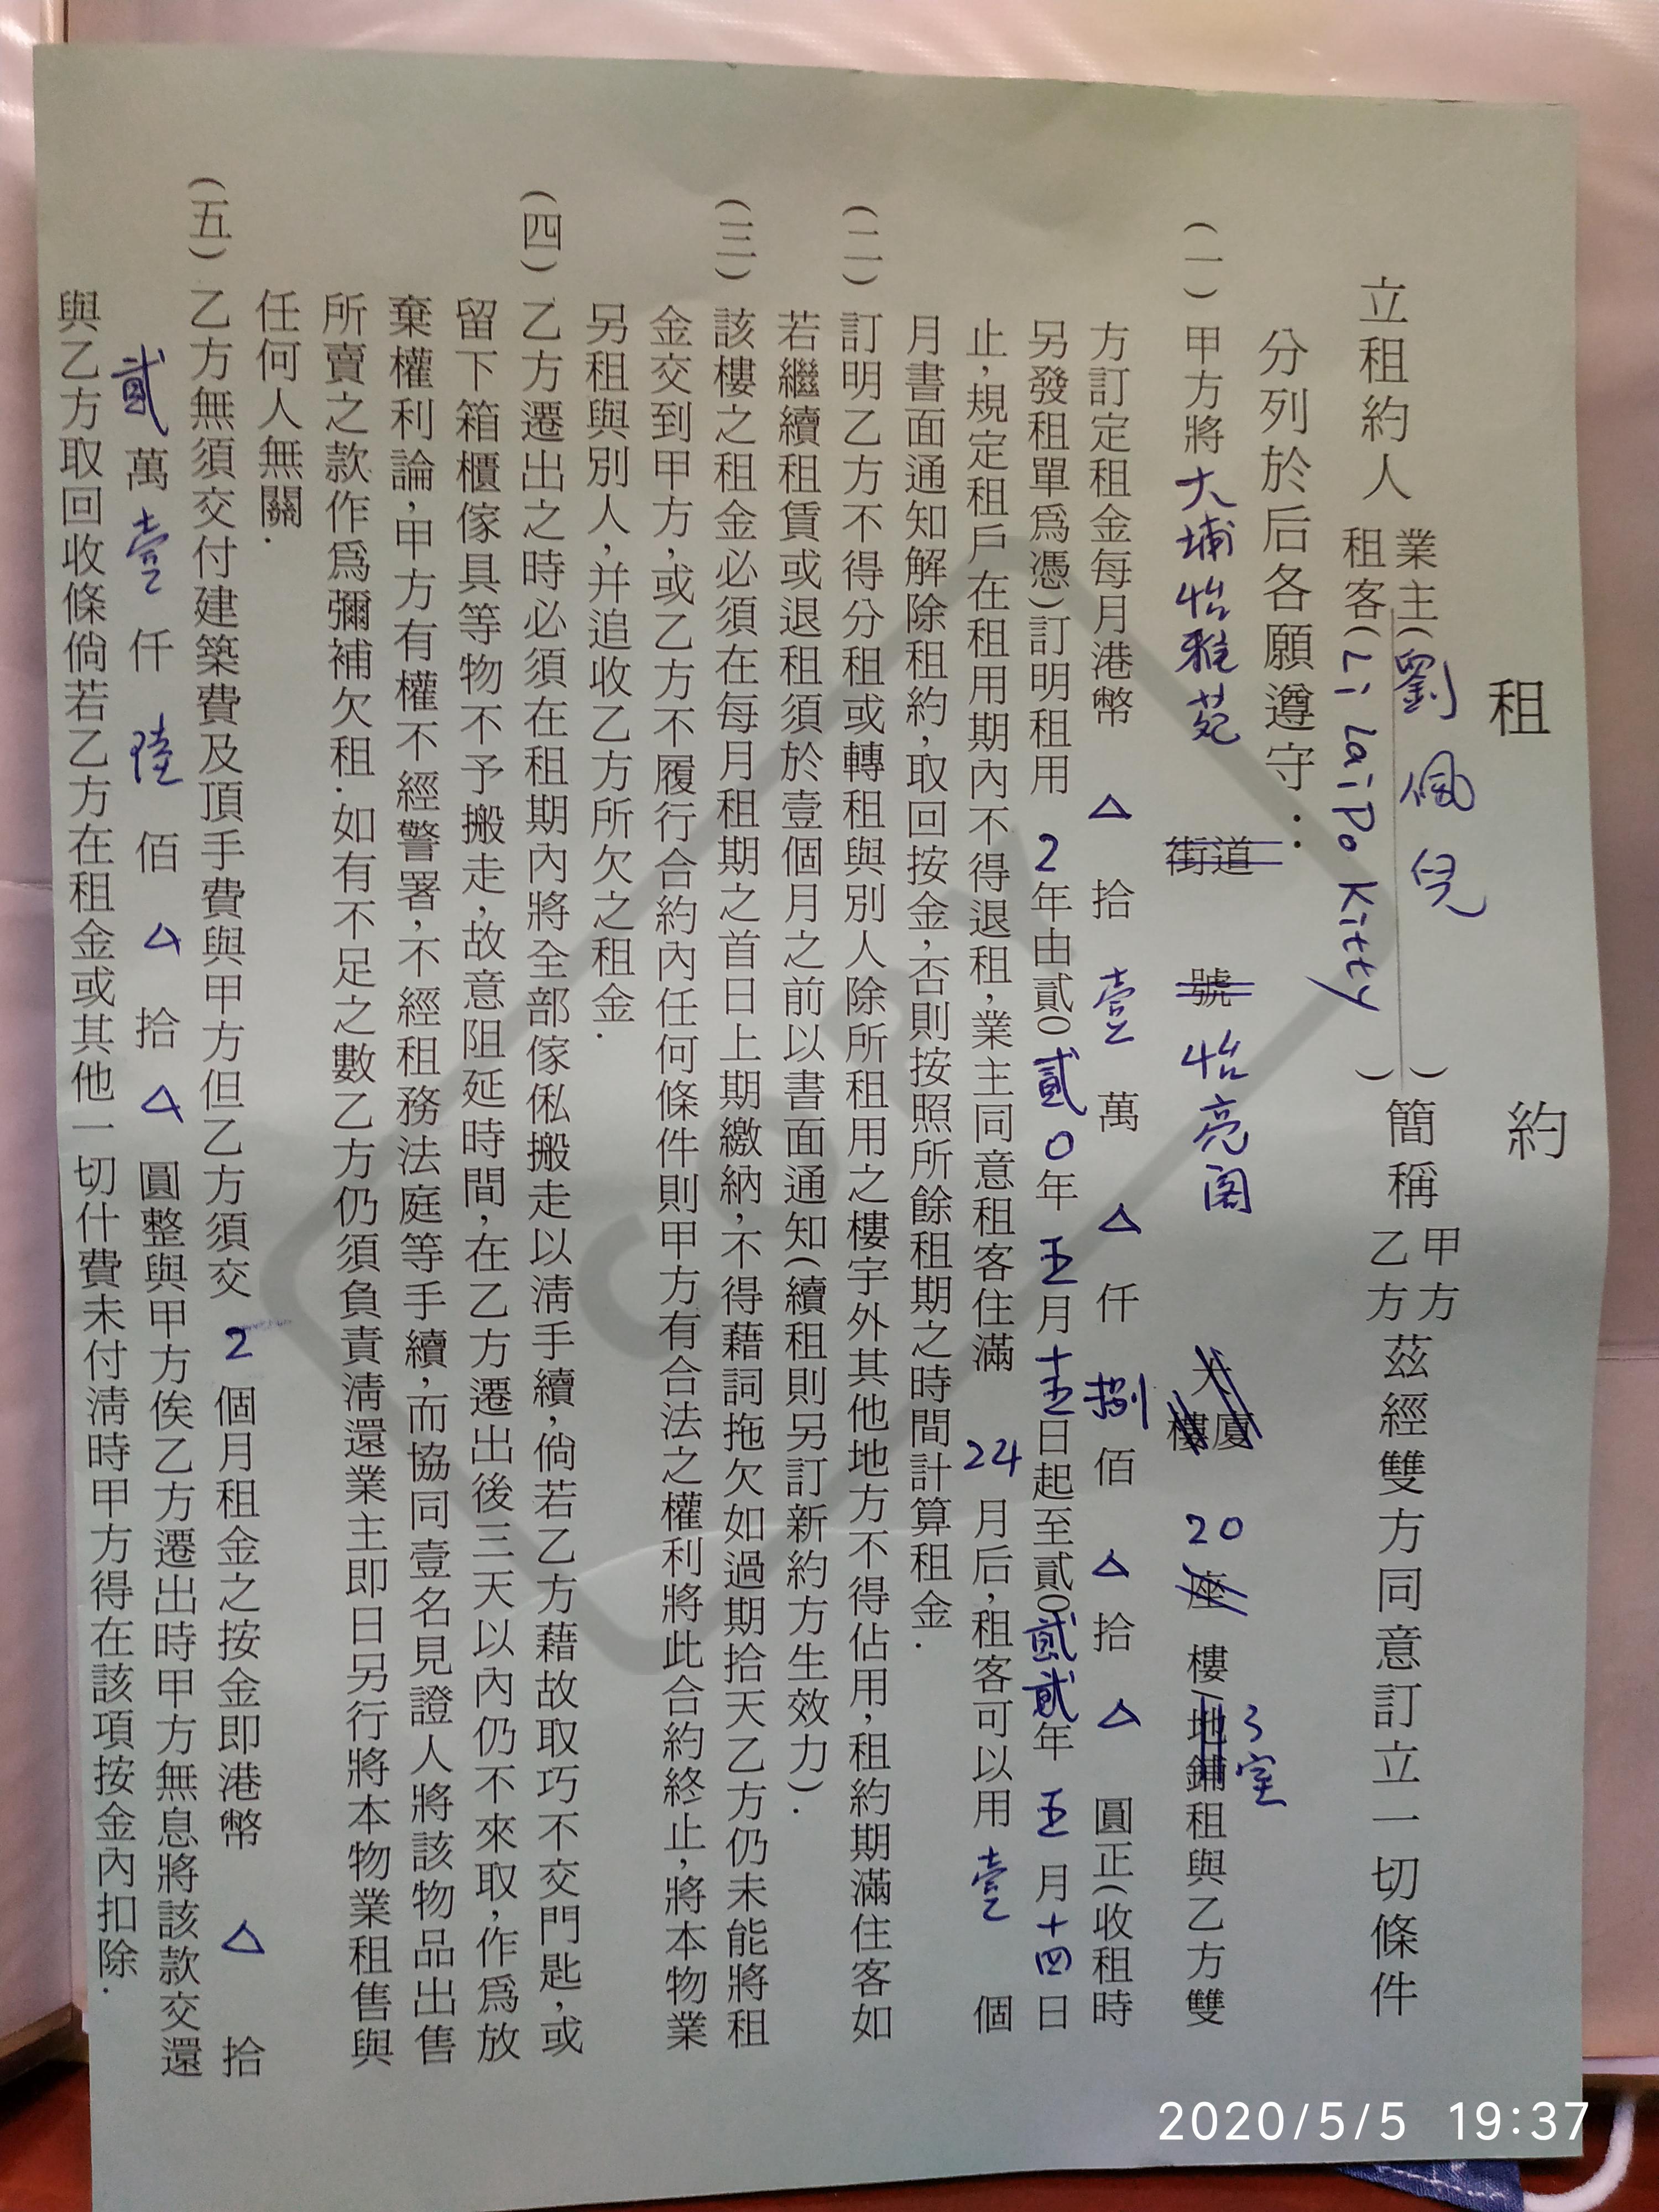 租約
立租約人 業主(劉佩兒)簡稱 甲方 茲經雙方同意訂立一切條件
租客(Li Lai Po Kitty) 乙方
分列於后各願遵守：
(一)甲方將大埔怡雅苑 街道 號 怡亮閣 大廈樓 20 座 樓/地鋪 3室 租與乙方雙
方訂定租金每月港幣 △ 拾 壹 萬 △ 仟 捌 佰 △ 拾 △ 圓正(收租時
另發租單爲憑)訂明租用 2 年由貳0貳0年五月十五日起至貳0貳貳年五月十四日
止,規定租戶在租用期內不得退租,業主同意租客住滿 24 月后,租客可以用 壹 個
月書面通知解除租約,取回按金,否則按照所餘租期之時間計算租金.
(二)訂明乙方不得分租或轉租與別人除所租用之樓宇外其他地方不得佔用,租約期滿住客如
若繼續租賃或退租須於壹個月之前以書面通知(續租則另訂新約方生效力).
(三)該樓之租金必須在每月租期之首日上期繳納,不得藉詞拖欠如過期拾天乙方仍未能將租
金交到甲方,或乙方不履行合約內任何條件則甲方有合法之權利將此合約終止,將本物業
另租與別人,并追收乙方所欠之租金.
(四)乙方遷出之時必須在租期內將全部傢俬搬走以清手續,倘若乙方藉故取巧不交門匙,或
留下箱櫃傢具等物不予搬走,故意阻延時間,在乙方遷出後三天以內仍不來取,作爲放
棄權利論,甲方有權不經警署,不經租務法庭等手續,而協同壹名見證人將該物品出售
所賣之款作爲彌補欠租.如有不足之數乙方仍須負責清還業主即日另行將本物業租售與
任何人無關.
(五)乙方無須交付建築費及頂手費與甲方但乙方須交 2 個月租金之按金即港幣 △ 拾
貳 萬 壹 仟 陸 佰 △ 拾 △ 圓整與甲方俟乙方遷出時甲方無息將該款交還
與乙方取回收條倘若乙方在租金或其他一切什費未付清時甲方得在該項按金內扣除.
COPY
2020/5/5 19:37